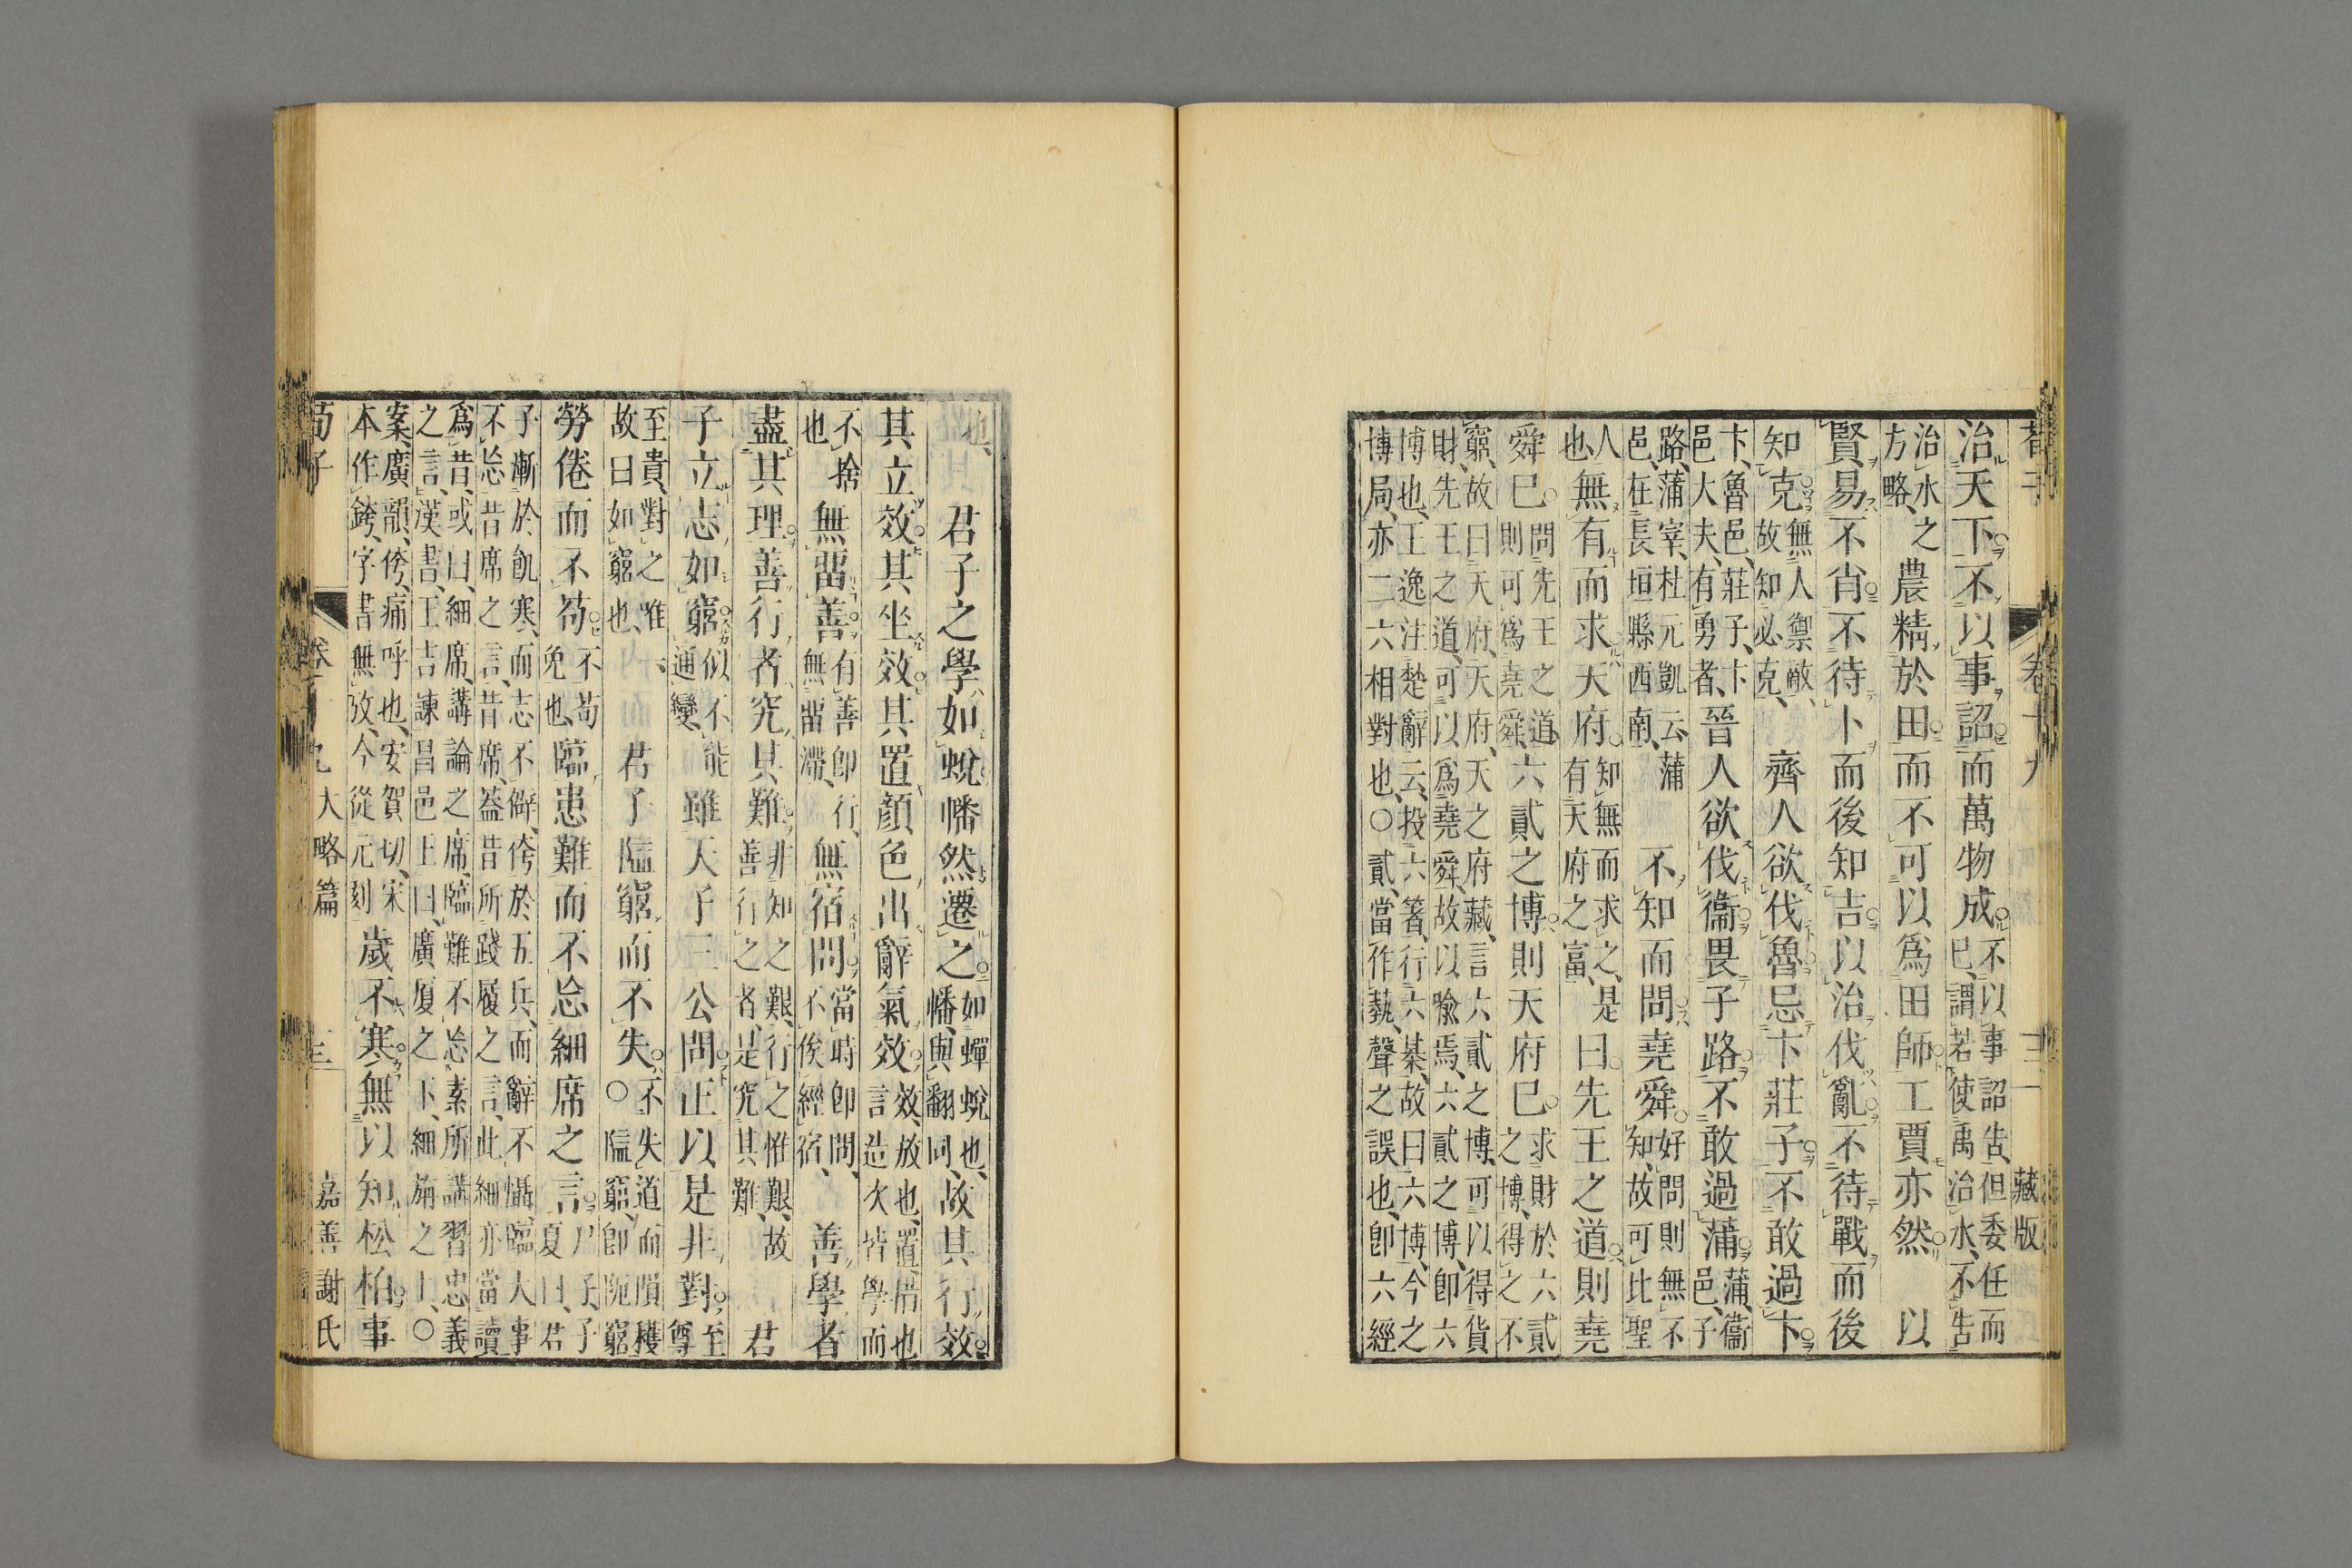 荀子 卷十九 藏版
治天下不以事詔而萬物成不以事詔吿但委任而
已謂若使禹治水不吿
治水之
方略農精於田而不可以爲田師工賈亦然 以
賢易不肖不待卜而後知吉以治伐亂不待戰而後
知克無人禦敵
故知必克 齊人欲伐魯忌卞莊子不敢過卞
卞魯邑莊子卞
邑大夫有勇者晉人欲伐衞畏子路不敢過蒲蒲衞
邑子
路蒲宰杜元凱云蒲
邑在長垣縣西南 不知而問堯舜好問則無不
知故可比聖
人
也無有而求天府知無而求之是
有天府之富曰先王之道則堯
舜已問先王之道
則可爲堯舜六貳之博則天府已求財於六貳
之博得之不
窮故曰天府天府天之府藏言六貳之博可以得貨
財先王之道可以爲堯舜故以喩焉六貳之博卽六
博也王逸注楚辭云投六箸行六棊故曰六博今之
博局亦二六相對也○貳當作蓺聲之誤也卽六經
也 君子之學如蛻幡然遷之如蟬蛻也
幡與翻同故其行效
其立效其坐效其置顏色出辭氣效效放也置措也
言造次皆學而
不捨
也無留善有善卽行
無留滯無宿問當時卽問
不俟經宿 善學者
盡其理善行者究其難非知之艱行之惟艱故
善行之者是究其難 君
子立志如窮似不能
通變雖天子三公問正以是非對至
尊
至貴對之唯一
故曰如窮也 君子隘窮而不失不失道而隕穫
○隘窮卽阨窮
勞倦而不苟不苟
免也臨患難而不忘細席之言尸子子
夏曰君
子漸於飢寒而志不僻侉於五兵而辭不懾臨大事
不忘昔席之言昔席蓋昔所踐履之言此細亦當讀
爲昔或曰細席講論之席臨難不忘素所講習忠義
之言漢書王吉諫昌邑王曰廣廈之下細旃之上○
案廣韻侉痛呼也安賀切宋
本作銙字書無攷今從元刻歲不寒無以知松柏事
荀子 卷十九大略篇 三 嘉善謝氏